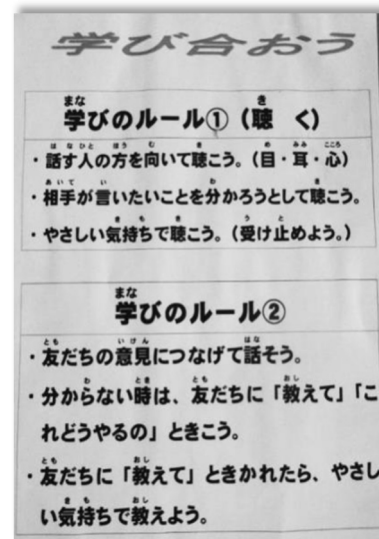 学び合おう
学びのルール①（聴 く）
・話す人の方を向いて聴こう。（目・耳・心）
・相手が言いたいことを分かろうとして聴こう。
・やさしい気持ちで聴こう。（受け止めよう。）
学びのルール②
・友だちの意見につなげて話そう。
・分からない時は、友だちに「教えて」「こ
れどうやるの」ときこう。
・友だちに「教えて」ときかれたら、やさし
い気持ちで教えよう。